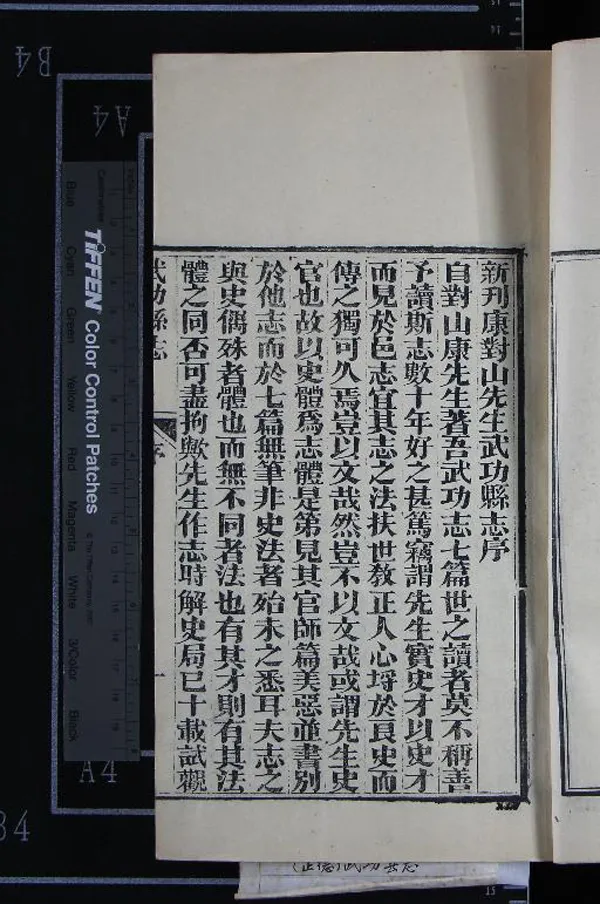 新刊康對山先生武功縣志序
自對山康先生著吾武功志七篇世之讀者莫不稱善
予讀斯志數十年好之甚篤竊謂先生實史才以史才
而見於邑志宜其志之法扶世敎正人心埒於良史而
傳之獨可久焉豈以文哉然豈不以文哉或謂先生史
官也故以史體爲志體是第見其官師篇美惡並書別
於他志而於七篇無筆非史法者殆未之悉耳夫志之
與史偶殊者體也而無不同者法也有其才則有其法
體之同否可盡拘歟先生作志時解史局已十載試觀
武功縣志
序
一
B4
A4
TIFFEN Color Control Patches
Blue Cyan Green Yellow Red Magenta White 3/Color Black
A4
B4
(正德)武功县志